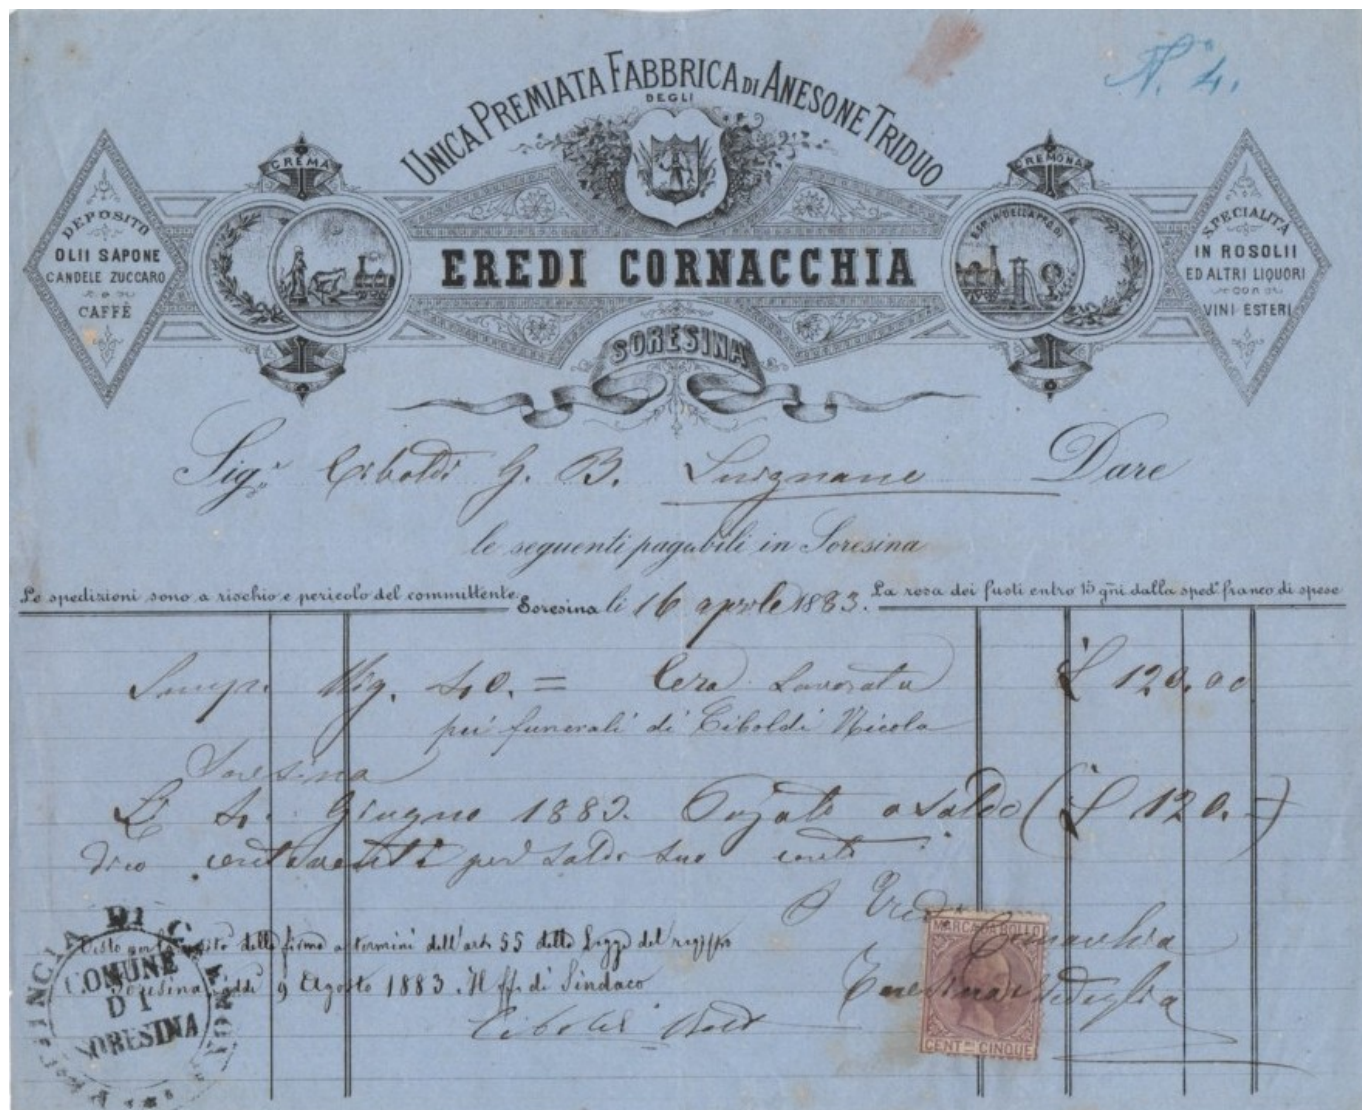 N.° 4.
UNICA PREMIATA FABBRICA DI ANESONE TRIDUO
DEGLI
CREMA
CREMONA
DEPOSITO
OLII SAPONE
CANDELE ZUCCARO
E
CAFFÈ
EREDI CORNACCHIA
SPECIALITÀ
IN ROSOLII
ED ALTRI LIQUORI
CON
VINI ESTERI
SORESINA
Sig.r Ciboldi G. B. Dare
le seguenti pagabili in Soresina
Le spedizioni sono a rischio e pericolo del committente
Soresina li 16 aprile 1883.
La resa dei fusti entro 15 gñi dalla sped.e franco di spese
40. = Cera Lavorata £ 120.00
pei funerali di Ciboldi Nicola
Soresina
Li 4. Giugno 1883. Pagato a saldo (£ 120.-)
dico centoventi per saldo suo conto
Eredi
Cornacchia
Visto per della firma a termini dell'art. 55 della Legge del registro
Soresina, addì 9 Agosto 1883. Il ff. di Sindaco
Ciboldi
MARCA DA BOLLO
CENT.MI CINQUE
PROVINCIA DI CREMONA
COMUNE
DI
SORESINA